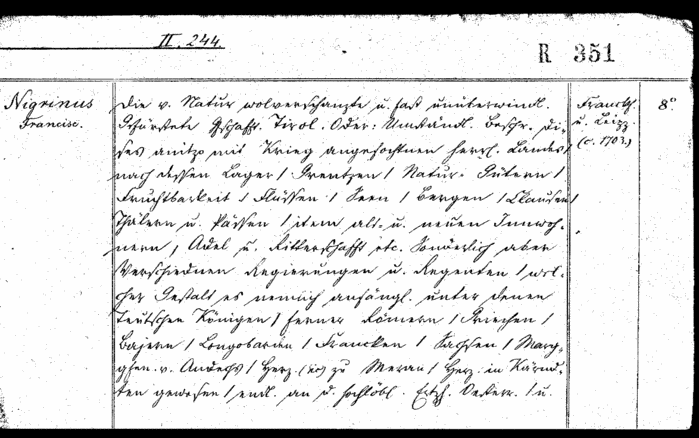 II. 244.
R 351
Nigrinus
Francisc.
Die v. Natur wolverschanzte u. fast unüberwindl.
Gefürstete Gfschafft. Tirol. Oder: Umständl. Beschr. di-
ses anitzo mit Krieg angefochtnen herrl. Landes/
nach dessen Lager / Grentzen / Natur= Gütern /
Fruchtbarkeit / Flüssen / Seen / Bergen / Clausen/
Thälern u. Pässen / item alt= u. neuen Innwoh-
nern, Adel u. Ritterschafft etc. Sonderlich aber
Verschiednen Regierungen u. Regenten / wel-
cher Gestalt es nemlich anfängl. unter denen
teutschen Königen / ferner Römern / Griechen /
Bajern / Longobarden / Francken / Sachsen / Marg-
gfen. v. Andechs / Herz. (sic) zu Meran / Herz. in Kärnd-
ten gewesen / endl. an d. hochlöbl. Ertzh. Oesterr. / u.
Franckf.
u. Leipz.
(c. 1703.)
8°.